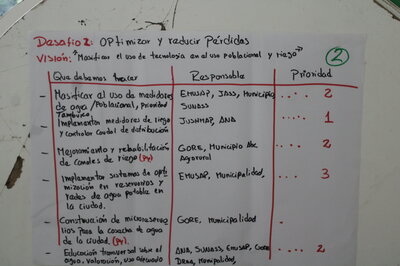 Desafio 2: OPtimizar y reducir Pérdidas
Visión: "Masificar el uso de tecnología en el uso poblacional y riego"
2
Que debemos hacer Responsable Prioridad
- Masificar al uso de medidores EMUSAP, JASS, Municipio .... 2
de agua/Poblacional, Prioridad SUNASS
Tambuico,
- Implementar medidores de riego JUSHMAP, ANA .... 1
y controlar caudal de distribución
- Mejoramiento y rehabilitación GORE, Municipio .... 2
de canales de riego (Py) Agrorural
- Implementar sistemas de opti EMUSAP, Municipalidad, .... 3
mización en reservorios y
redes de agua potable en
la ciudad.
- Construcción de microreservo GORE, Municipalidad .
rios para la cosecha de agua
de la ciudad (Py).
- Educación transversal sobre el ANA, SUNASS, EMUSAP, .. 2
agua, valoración, uso adecuado DREA, Municipalidad,